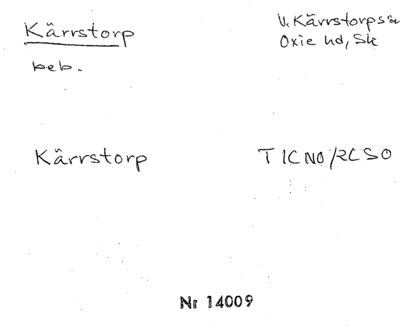 Kärrstorp
V. Kärrstorps sn
Oxie hd, Sk
beb.
Kärrstorp
T 1C NO/2C SO
Nr 14009